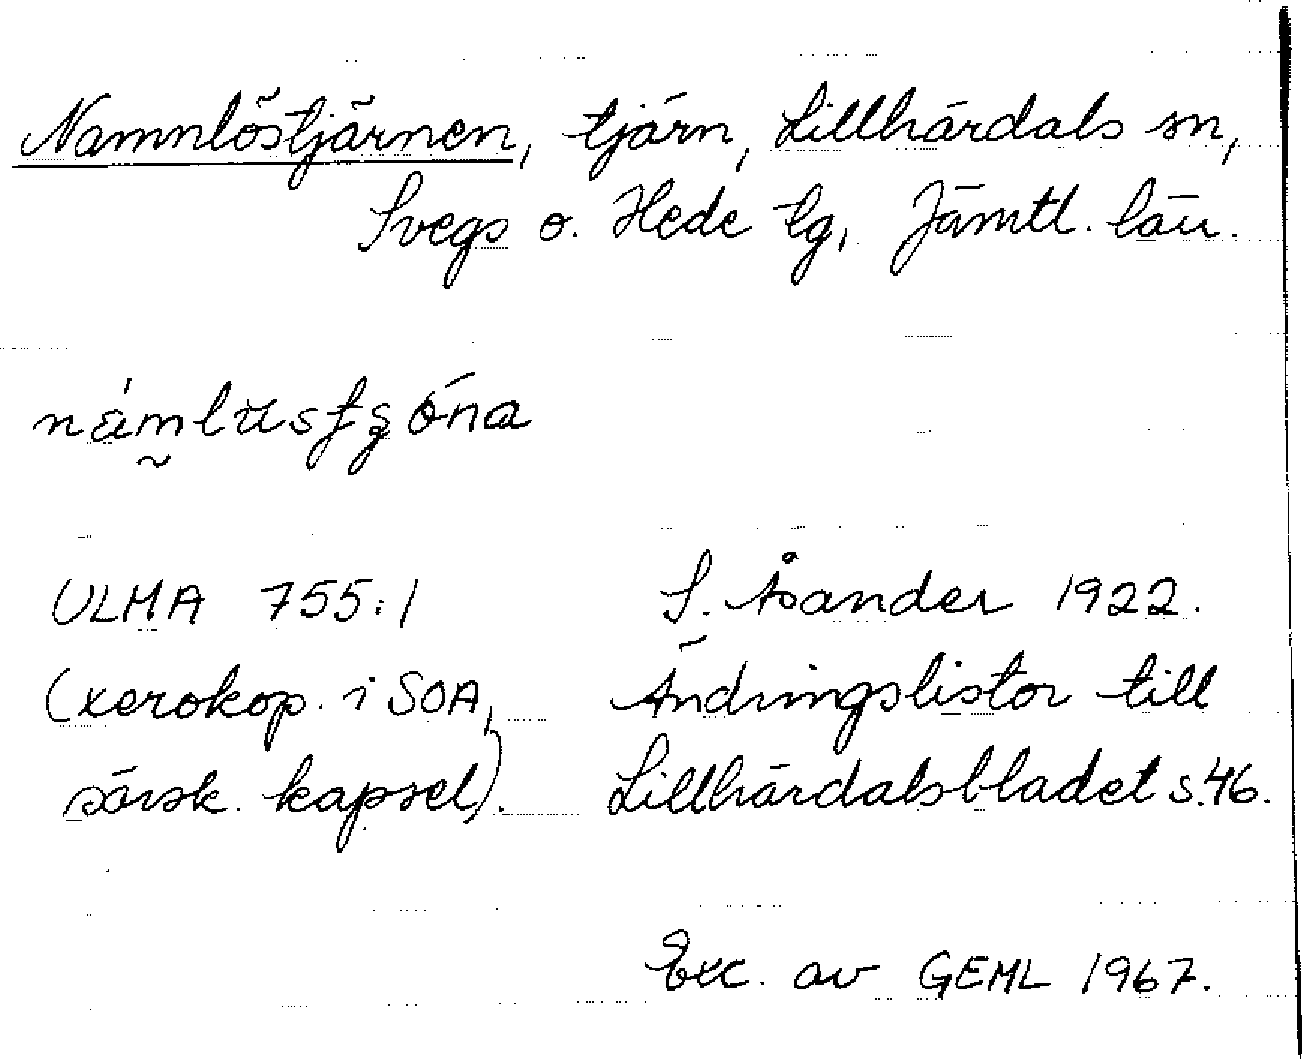 Namnlöstjärnen, tjärn, Lillhärdals sn,
Svegs o. Hede tg, Jämtl. län.
ULMA 755:1
S. Åsander 1922.
(xerokop. i SOA,
Ändringslistor till
särsk. kapsel).
Lillhärdalsbladet s.46.
Exc. av GEML 1967.